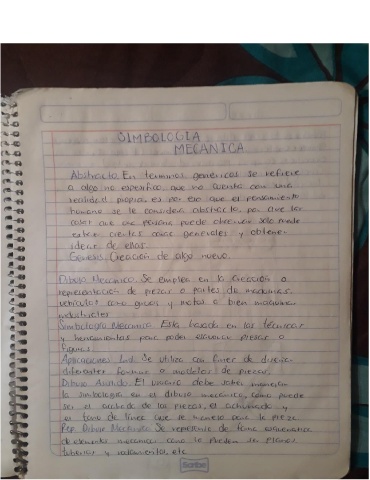 SIMBOLOGIA
MECANICA
Abstracto. En terminos genericos se refiere
a algo no especifico que no cuenta con una
realidad propia, es por eso que el pensamiento
humano se le considera abstracto por que las
cosas que una persona puede observar solo puede
extraer ciertas cosas generales y obtener
ideas de ellas.
Genesis. Creación de algo nuevo.
Dibujo Mecanico. Se emplea en la creación o
representación de piezas o partes de maquinas,
vehiculos como gruas y motos o bien maquinas
industriales
Simbologia Mecanica. Esta basada en las técnicas
y herramientas para poder piezas o
figuras.
Aplicaciones Ind. Se utiliza con fines de diseñar
diferentes formas o modelos de piezas.
Dibujo. El usuario debe saber
la simbologia en el dibujo mecanico, como puede
ser el de las piezas, el achurado y
el tipo de linea que se maneja para la pieza
Rep. Dibujo Mecanico. Se representa de forma esquematica
de elementos mecanicos como le pueden ser planos
tuberias y rodamientos, etc
Scribe